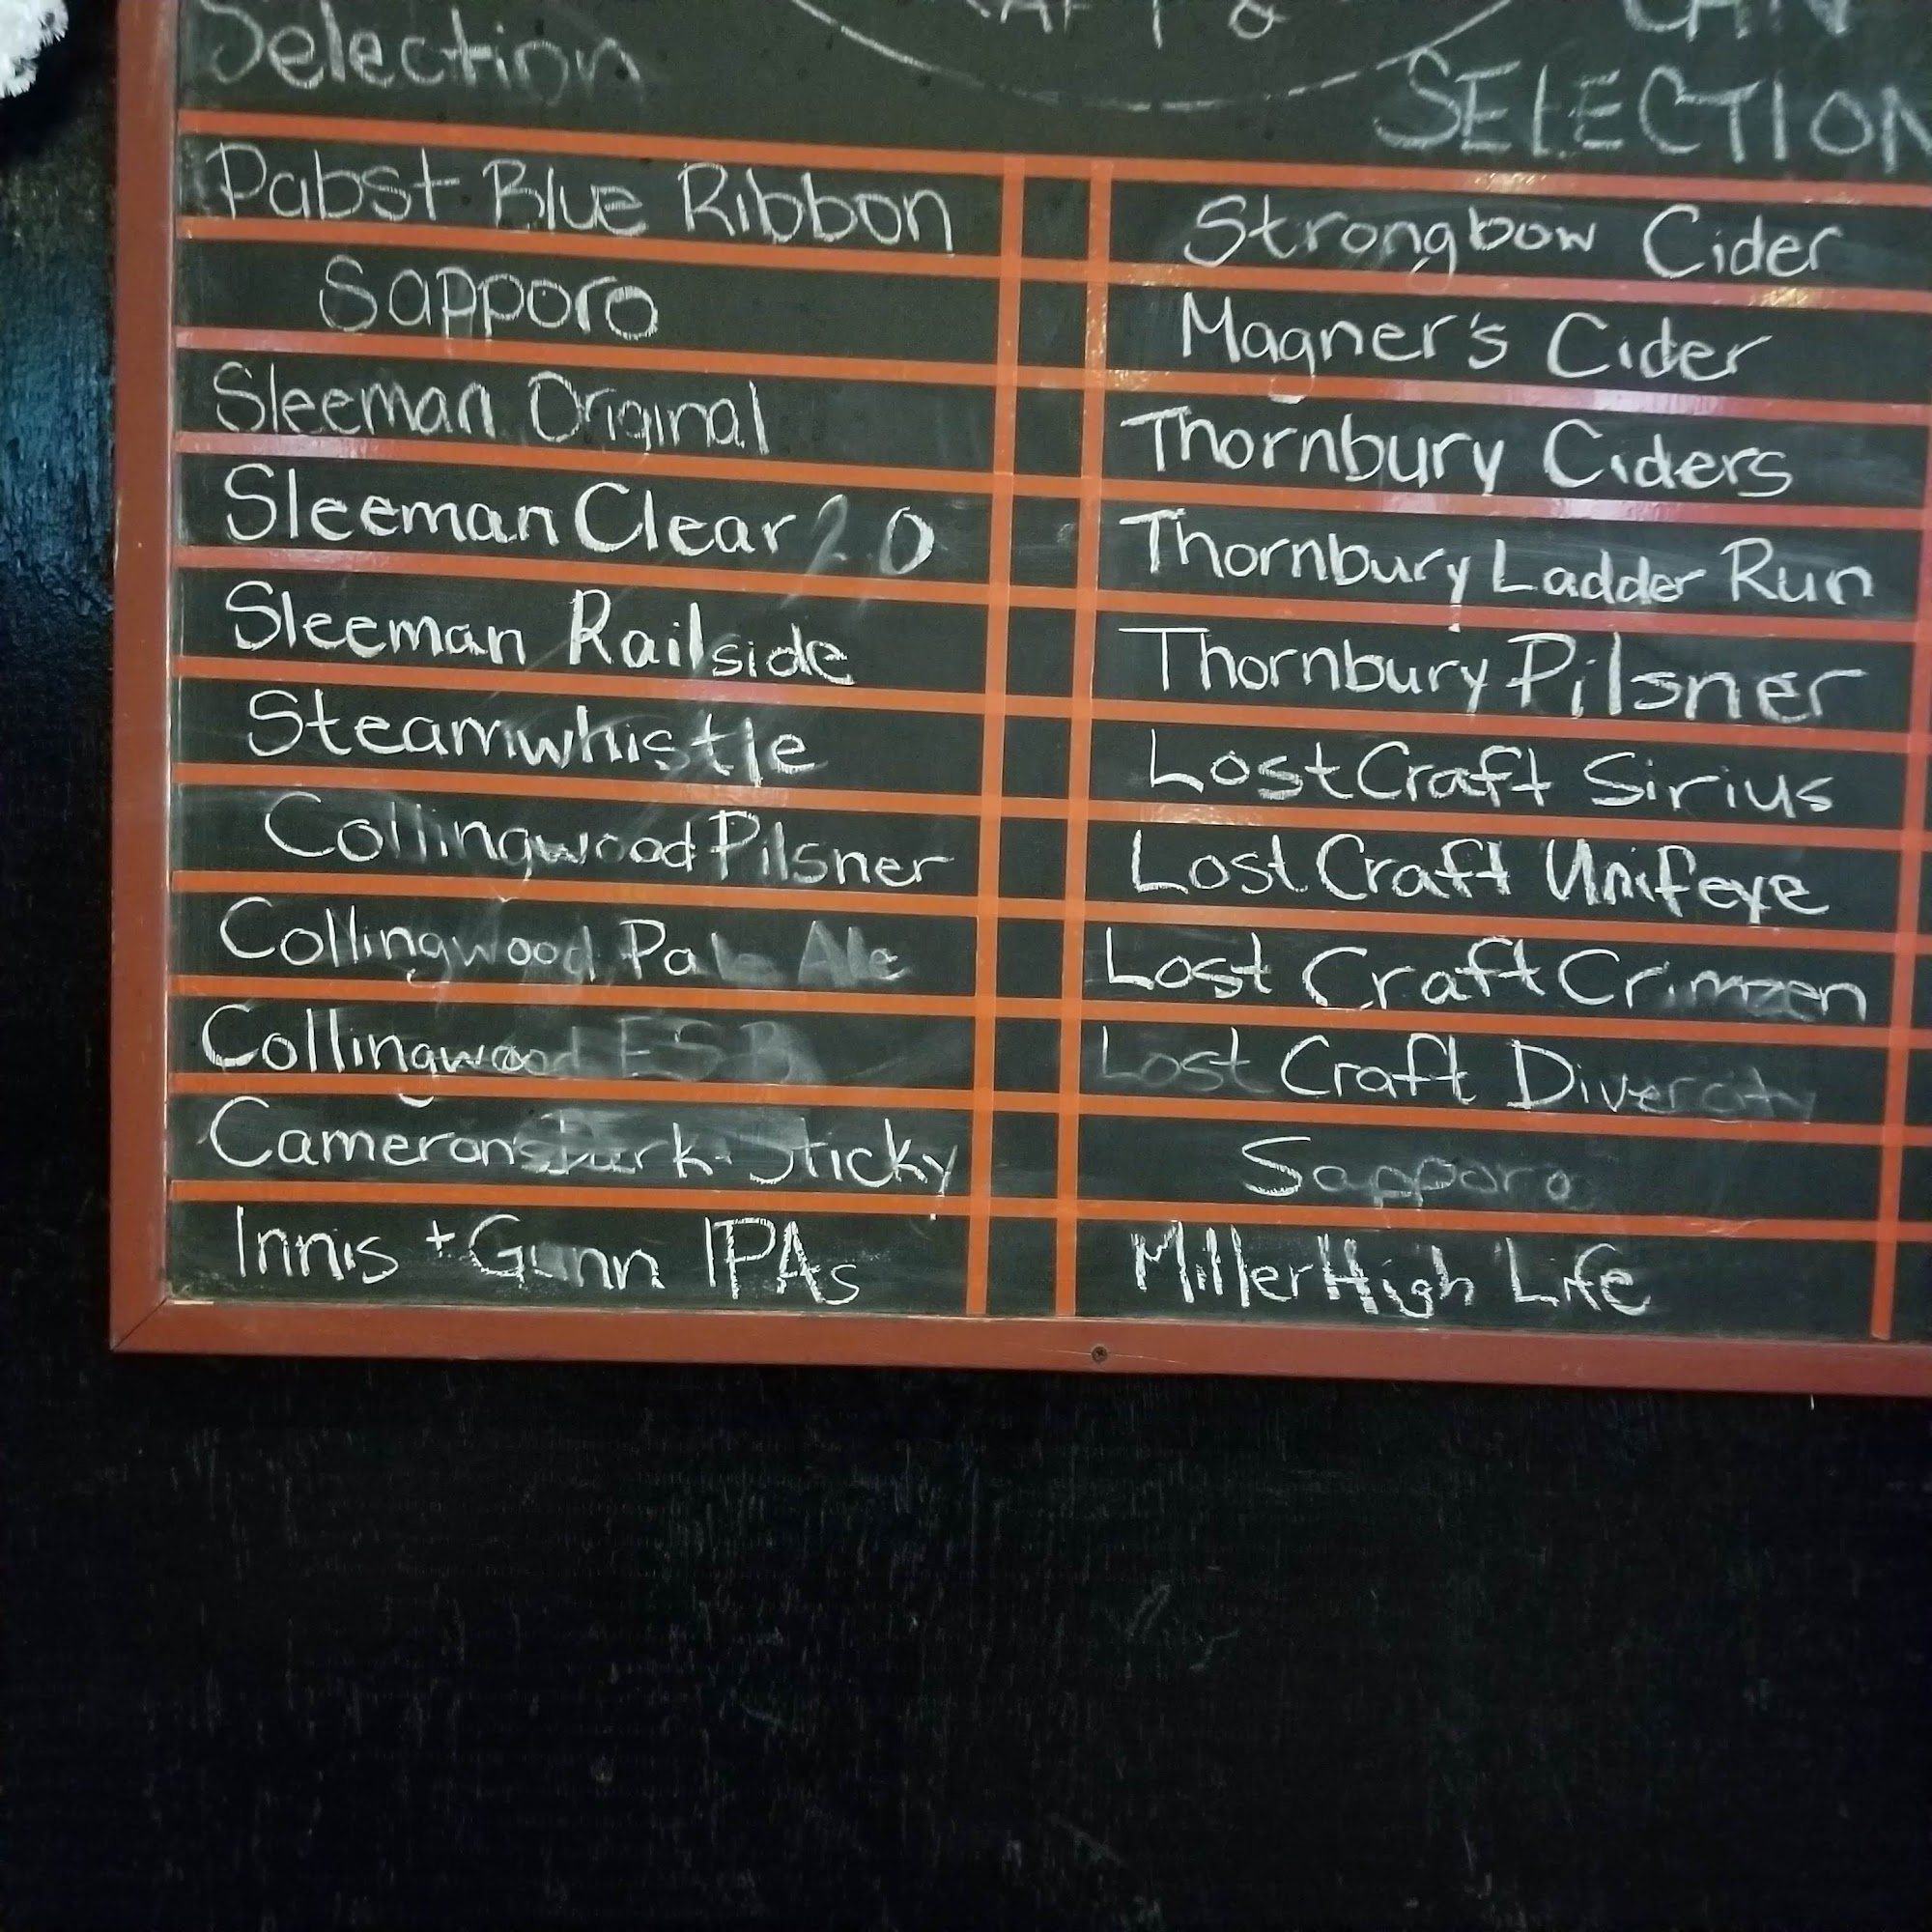 Selection
CAN
SELECTION
Pabst Blue Ribbon
Sapporo
Sleeman Original
Sleeman Clear 2.0
Sleeman Railside
Steamwhistle
Collingwood Pilsner
Collingwood Pale Ale
Collingwood ESB
Cameron's Dark Sticky
Innis + Gunn IPAs
Strongbow Cider
Magner's Cider
Thornbury Ciders
Thornbury Ladder Run
Thornbury Pilsner
Lost Craft Sirius
Lost Craft Unifeye
Lost Craft Crimzen
Lost Craft Divercity
Sapporo
Miller High Life